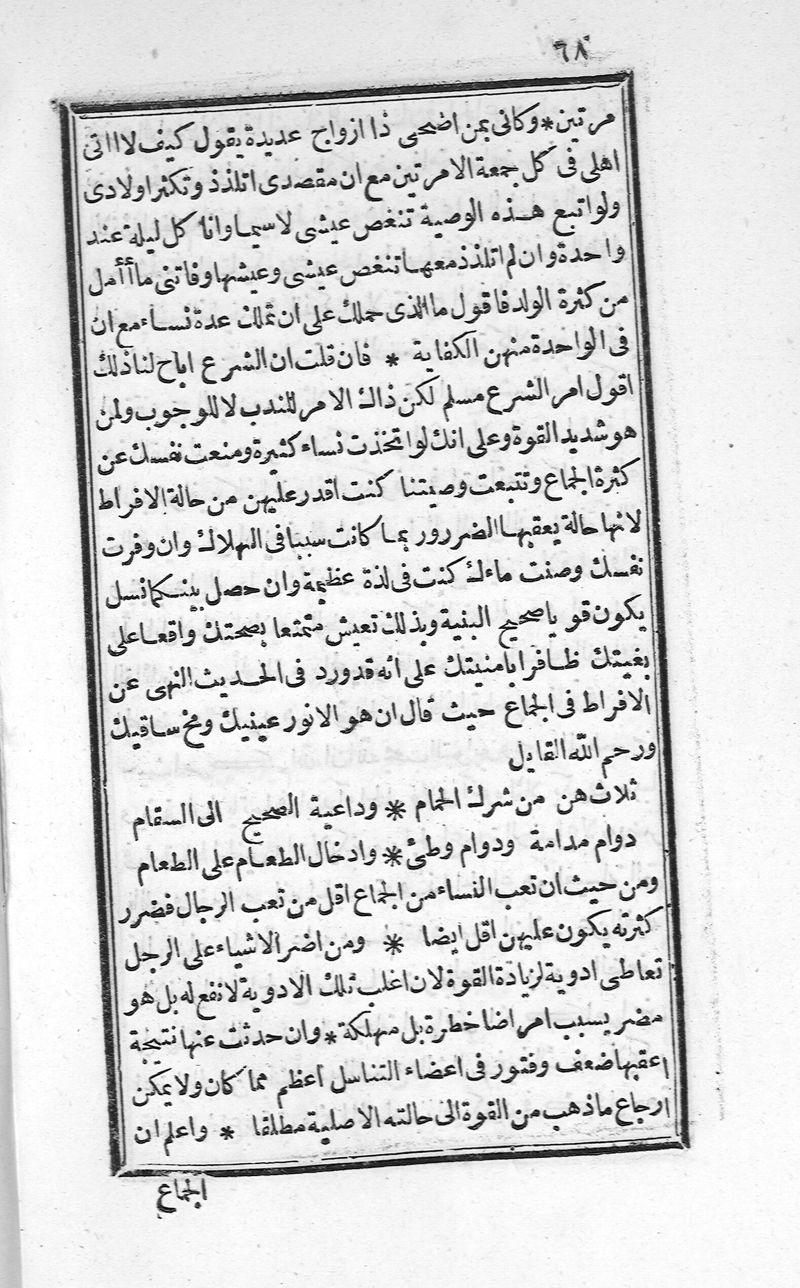 ٦٨
مرتين * وكانى بمن اضحى ذا ازواج عديدة يقول كيف لا ااتى
اهلى فى كل جمعة الا مرتين مع ان مقصدى اتلذذ وتكثر اولادى
ولو اتبع هذه الوصية تنغص عيشى لا سيما وانا كل ليلة عند
واحدة وان لم اتلذذ معها تنغص عيشى وعيشها وفاتنى ما أأمل
من كثرة الولد فاقول ما الذى حملك على ان تملك عدة نساء مع ان
فى الواحدة منهن الكفاية * فان قلت ان الشرع اباح لنا ذلك
اقول امر الشرع مسلم لكن ذاك الامر للندب لا للوجوب ولمن
هو شديد القوة وعلى انك لو اتخذت نساء كثيرة ومنعت نفسك عن
كثرة الجماع وتتبعت وصيتنا كنت اقدر عليهن من حالة الافراط
لانها حالة يعقبها الضرر وربما كانت سببا فى الهلاك وان وفرت
نفسك وصنت ماءك كنت فى لذة عظيمة وان حصل بينكما نسل
يكون قويا صحيح البنية وبذلك تعيش متمتعا بصحتك واقعا على
بغيتك ظافرا بامنيتك على انه قد ورد فى الحديث النهى عن
الافراط فى الجماع حيث قال ان هو الا نور عينيك ومخ ساقيك
ورحم الله القايل
ثلاث هن من شرك الحمام * وداعية الصحيح الى السقام
دوام مدامة ودوام وطئ * وادخال الطعام على الطعام
ومن حيث ان تعب النساء من الجماع اقل من تعب الرجال فضرر
كثرته يكون عليهن اقل ايضا * ومن اضر الاشياء على الرجل
تعاطى ادوية لزيادة القوة لان اغلب تلك الادوية لا نفع له بل هو
مضر يسبب امراضا خطرة بل مهلكة * وان حدثت عنها نتيجة
اعقبها ضعف وفتور فى اعضاء التناسل اعظم مما كان ولا يمكن
ارجاع ما ذهب من القوة الى حالته الاصلية مطلقا * واعلم ان
الجماع